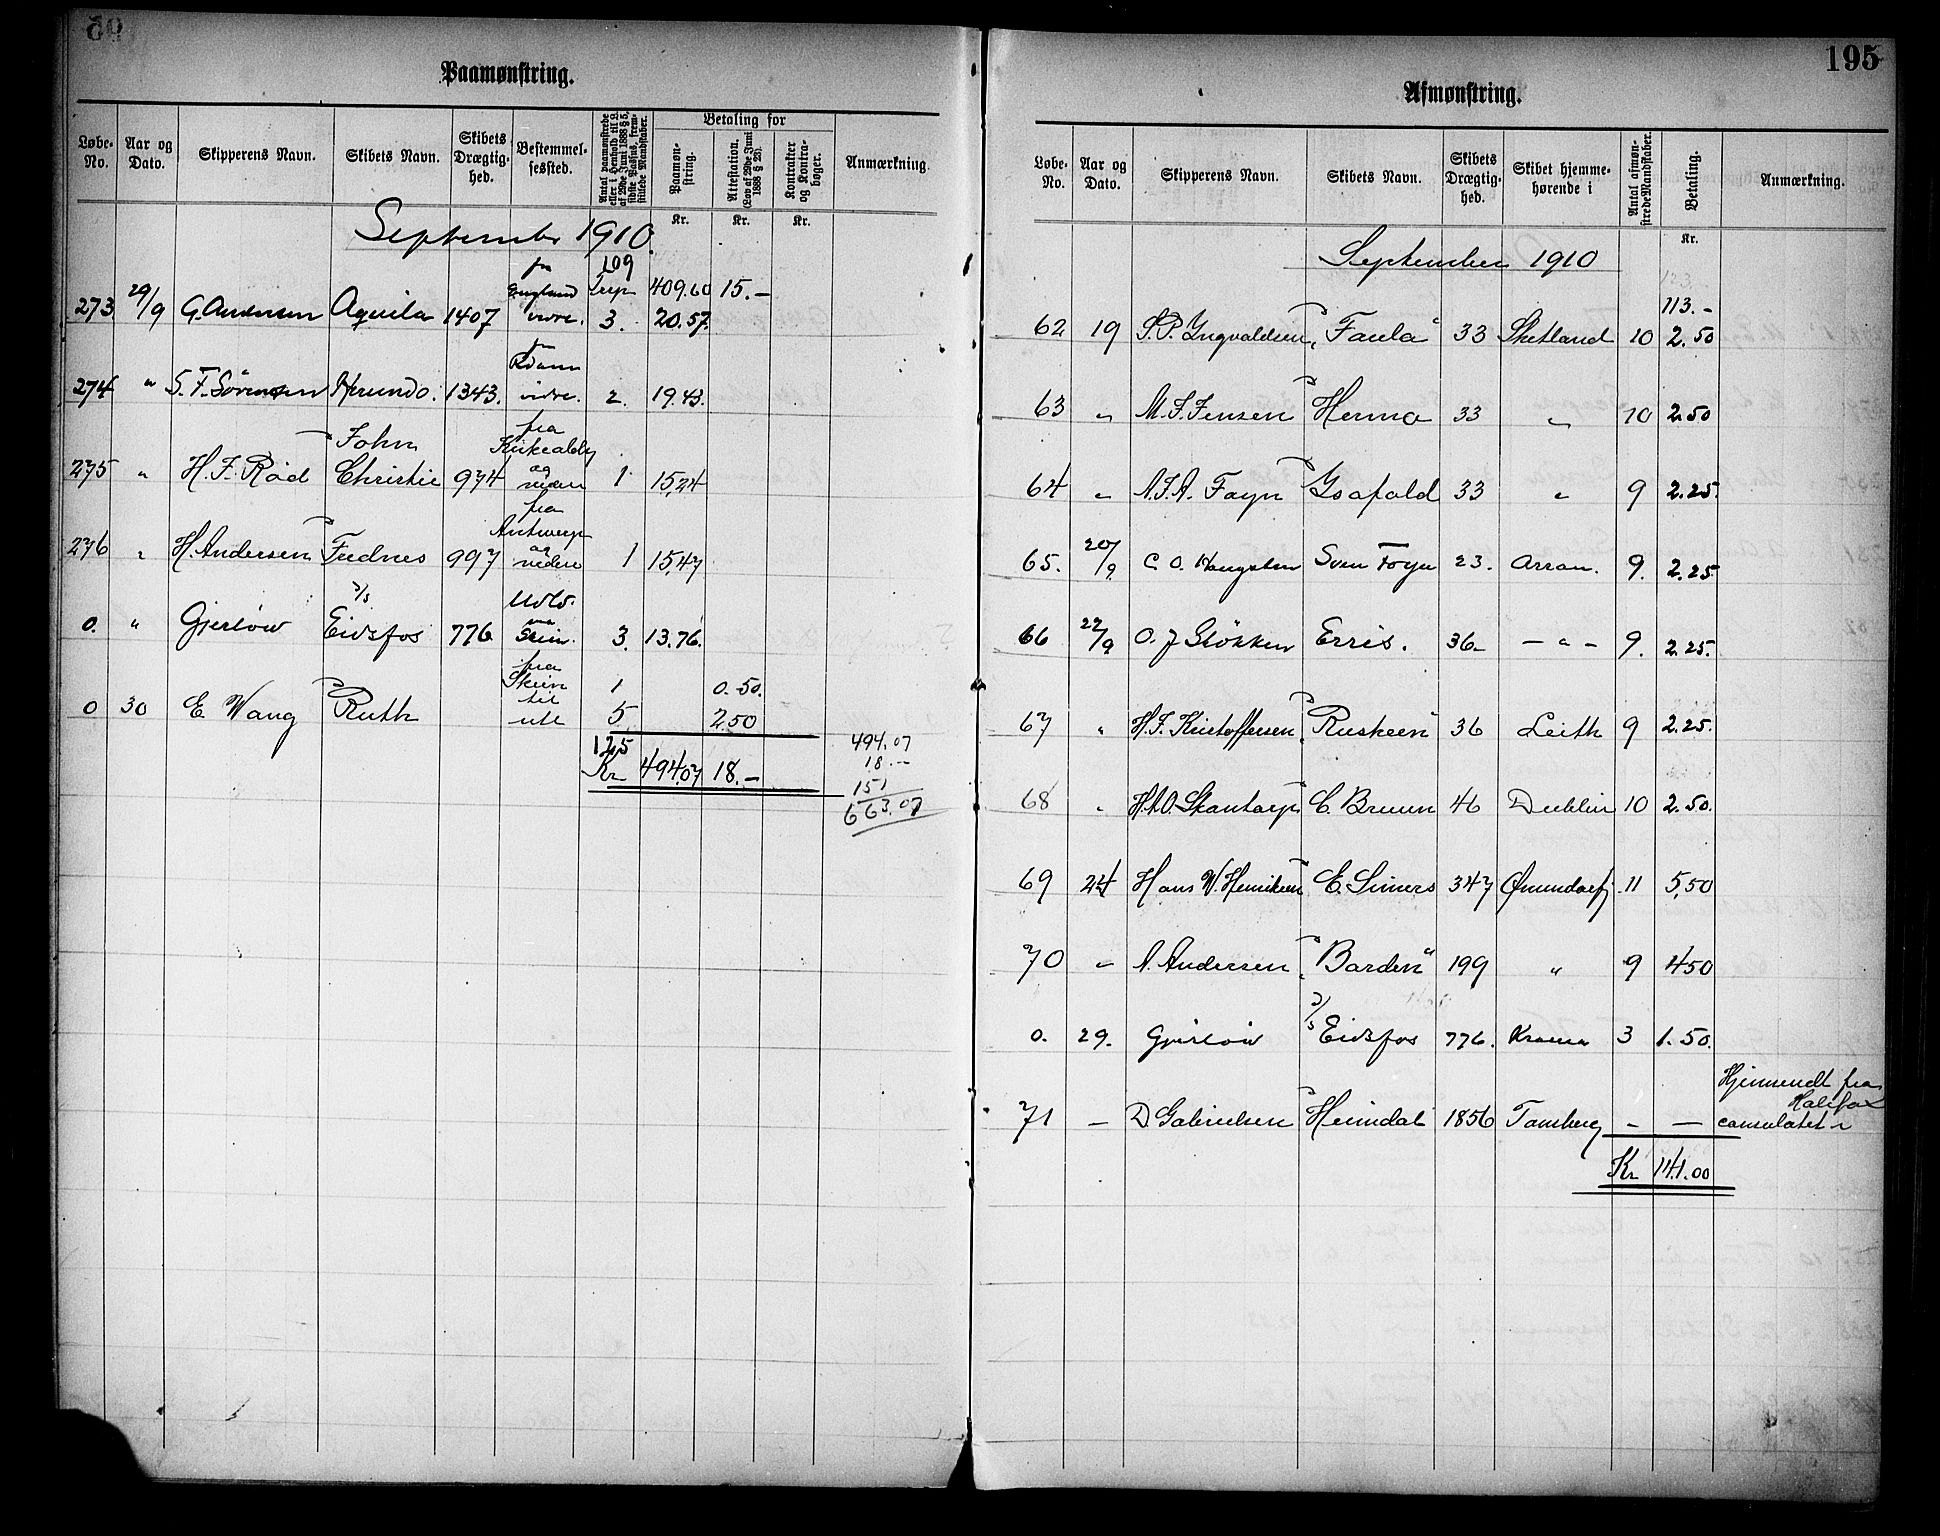 195
Paamønstring.
Løbe-No. Aar og Dato. Skipperens Navn. Skibets Navn. Skibets Drægtig-hed. Bestemmel-sessted. Antal paamønstrede eller i Henhold til L. af 29de Juni 1888 § 5, sidste Passus, frem-stillede Mandskaber. Betaling for Paamøn-string. Attestation. (Lov af 29de Juni 1888 § 25). Kontrakter og Kontra-bøger. Anmærkning.
Kr. Kr. Kr.
September 1910.
fra 109
England Trsp 409.60 15.-
273 29/9 G. Andersen Aquila 1407 vidre. 3. 20.57.
274 " S. F. Sørensen Hirundo. 1343. vidre. 2. 19.43.
John fra Kirkcaldy
275 " H. J. Rød Christie 974 og videre 1 15,24
fra Antwerp
276 " H. Andersen Frednes 997 og videre 1 15,47
D/s
0. " Gjerløw Eidsfos 776 Skien. 3. 13.76.
fra Skien 1 0.50.
0 30 E Wang Ruth til ute 5 2.50
125
Kr 494.07 18.-
494.07
18.-
151
663.07
Afmønstring.
Løbe-No. Aar og Dato. Skipperens Navn. Skibets Navn. Skibets Drægtig-hed. Skibet hjemme-hørende i Antal afmøn-strede Mandskaber. Betaling. Anmærkning.
Kr.
September 1910
113.-
62 19 S. P. Yngvaldsen "Faula" 33 Shetland 10 2.50
63 " M. J. Jensen Herma 33 " 10 2.50
64 " A. J. A. Foyn Ysafold 33 " 9 2.25.
65. 20/9 C. O. Sven Foyn 23. Arran. 9. 2.25
66 22/9 O. J Støkken Erris. 36 - " - 9. 2.25.
67 " H. J. Kristoffersen "Ruskeen" 36 Leith 9 2.25.
68 " H.A.O. Skontorp C. Bruun 46 Dublin 10 2.50.
69 24 Hans W. Henriksen E. Simers 347 Ønundarfj. 11 5,50
70 " A. Andersen "Barden" 199 " 9 4.50
D/s
0. 29. Gjerløw Eidsfos 776. Krania 3 1.50.
Hjemsendt fra
Halifax
71 - D Gabrielsen Heimdal 1856 Tønsberg - - consulatet
Kr 141.00